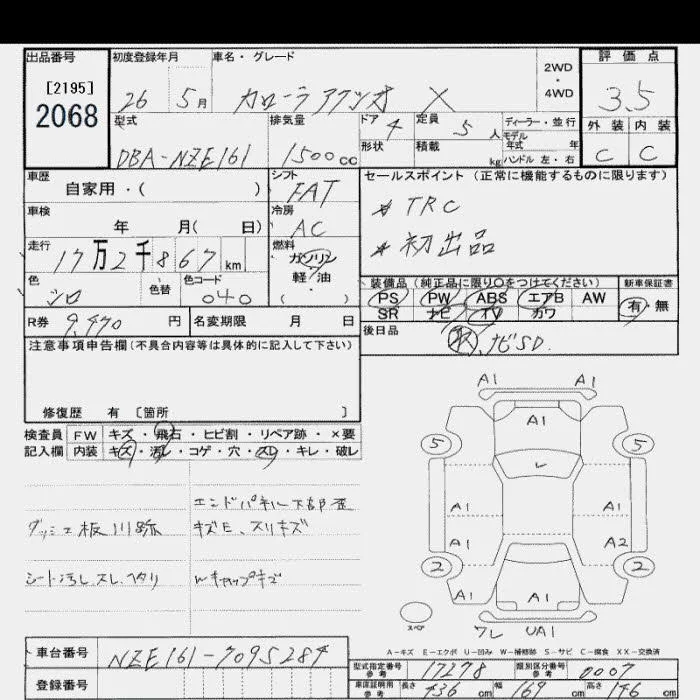 出品番号 初度登録年月 車名・グレード 2WD・4WD 評価点
[2195] 2068 26 5月 カローラアクシオ X 3.5
型式 排気量 ドア 4 定員 5人 ディーラー・並行 外装 内装
DBA-NZE161 1500cc 形状 積載 kg モデル年式 年 ハンドル 左・右 C C
車歴 シフト セールスポイント (正常に機能するものに限ります)
自家用・( ) FAT
車検 冷房 * TRC
年 月( 日) AC * 初出品
走行 17万2千867km 燃料 ガソリン 軽・油 ( )
色 シロ 色替 色コード 040
装備品 (純正品に限り○をつけてください) 新車保証書
PS PW ABS エアB AW 有・無
SR ナビ TV カワ
R券 9,470円 名変期限 月 日 後日品 取 ナビSD.
注意事項申告欄(不具合内容等は具体的に記入して下さい)
修復歴 有 [箇所 ]
検査員 FW キズ・飛石・ヒビ割・リペア跡・×要
記入欄 内装 キズ・汚レ・コゲ・穴・スレ・キレ・破レ
エンドパネル下部歪
キズE、スリキズ
シート汚し.スレ.ヘタリ Wキャップキズ
A1 A1
A1
5 5
A1 A1
A1 A2
2 2
A1 A1 A1
スペア ワレ UA1
A-キズ E-エクボ U-凹み W-補修跡 S-サビ C-腐食 XX-交換済
車台番号 NZE161-7095284
登録番号
型式指定番号 参考 17278 類別区分番号 参考 0007
車庫証明用 参考 長さ 436cm 幅 169cm 高さ 146cm